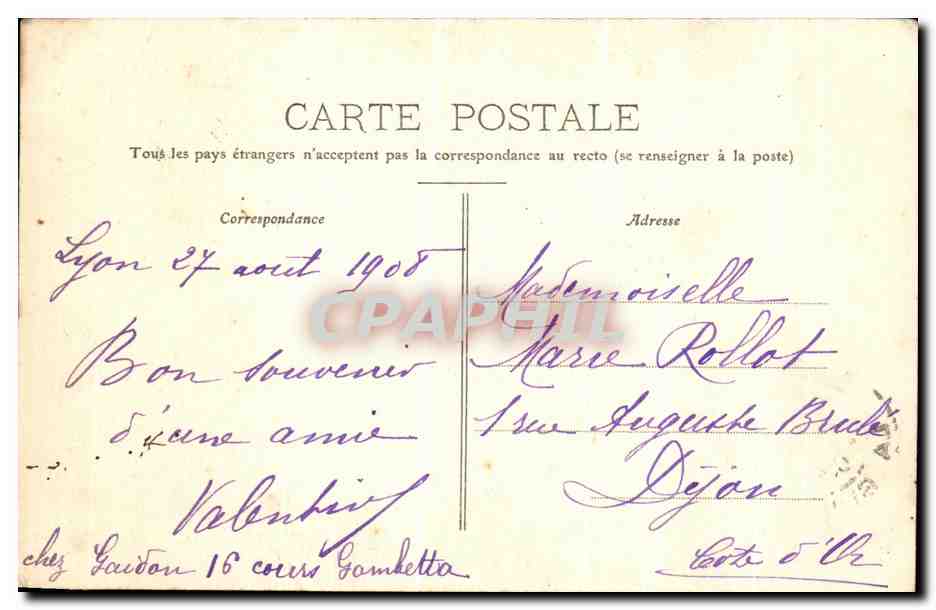 CARTE POSTALE
Tous les pays étrangers n'acceptent pas la correspondance au recto (se renseigner à la poste)
Correspondance
Lyon 27 aout 1908
Bon souvenir
d'une amie
Valentine
chez Gaidon 16 cours Gambetta
Adresse
Mademoiselle
Marie Rollot
1 rue Auguste Brulé
Dijon
Côte d'Or
CPAPHIL